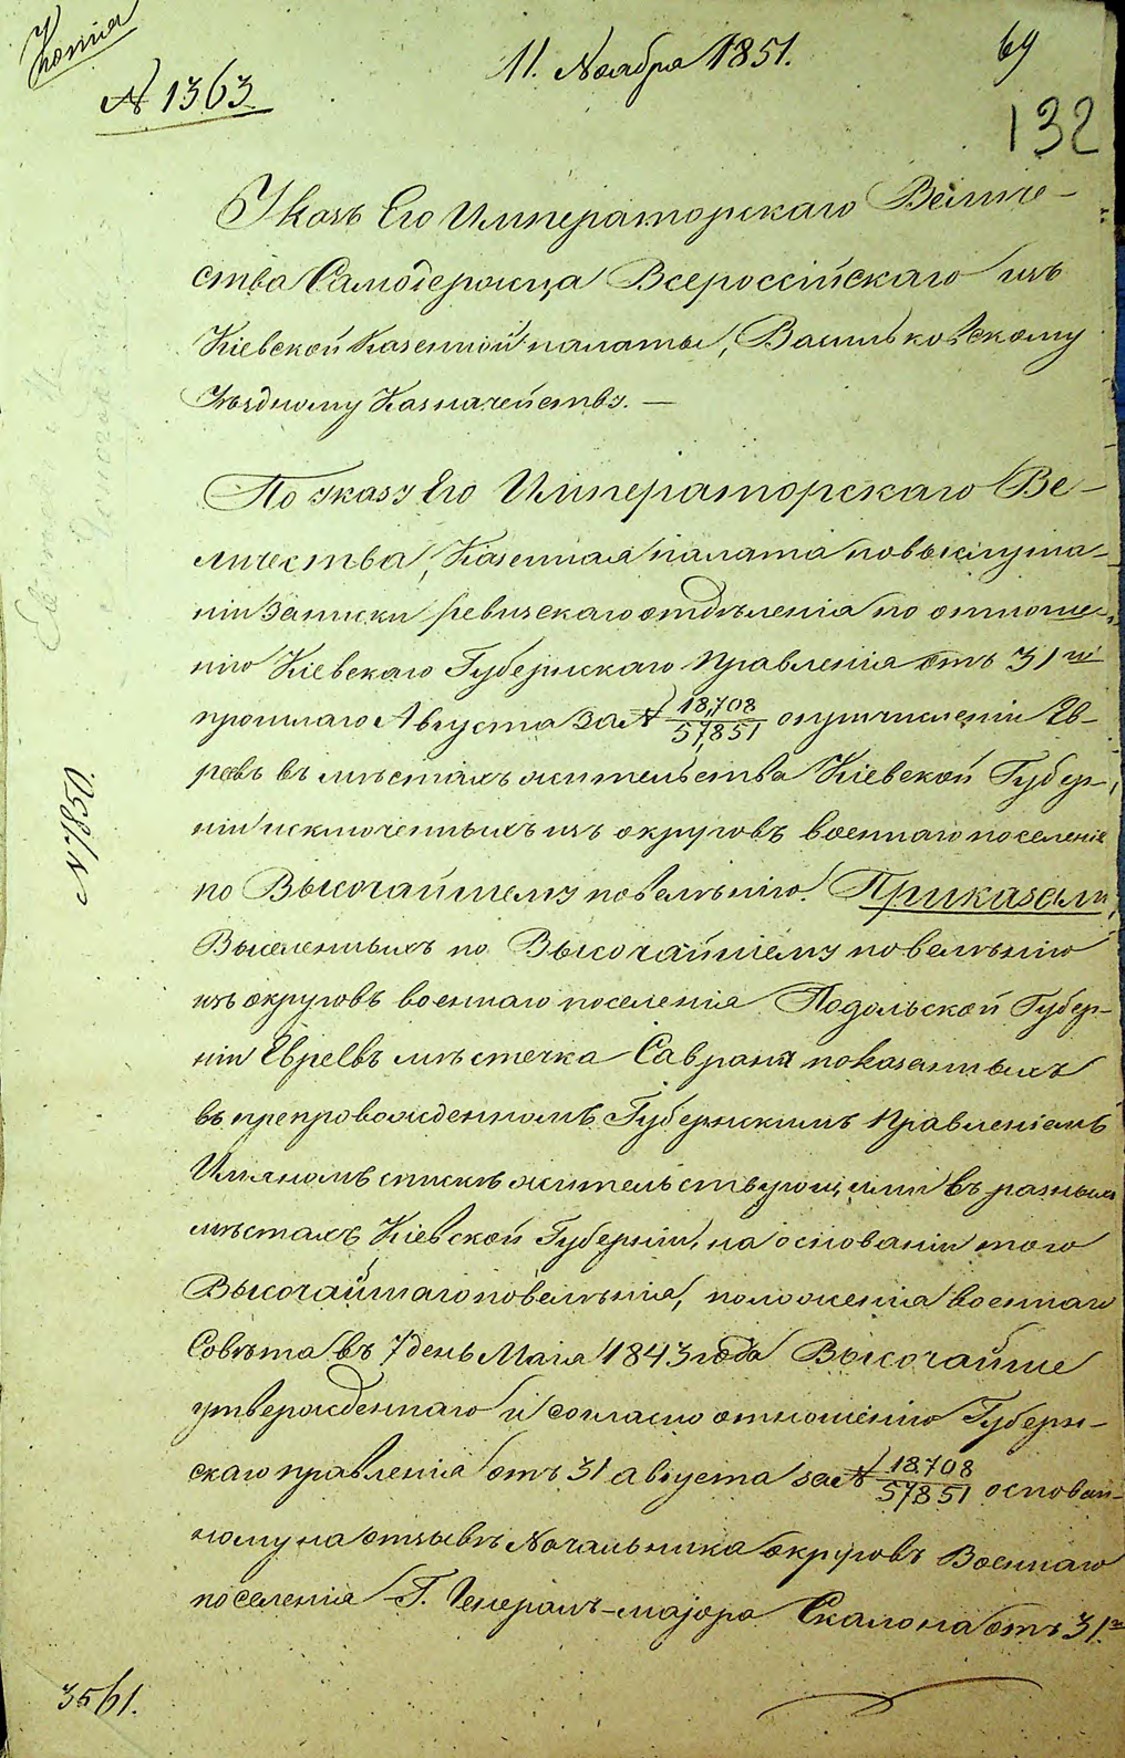 Копія
№ 1363
11. Ноября 1851.
69
132
Указъ Его Императорскаго Величе-
ства Самодержца Всероссійскаго изъ
Кіевской Казенной палаты, Васильковскому
Уѣздному Казначейству. —
По указу Его Императорскаго Ве-
личества, Казенная палата по выслуша-
ніи записки ревизскаго отдѣленія по отноше-
нію Кіевскаго Губернскаго Правленія отъ 31 го
прошлаго Августа за № 18,708/57,851 о причисленіи Ев-
реевъ въ мѣстахъ жительства Кіевской Губер-
ніи исключенныхъ изъ округовъ военнаго поселенія
по Высочайшему повелѣнію. Приказали,
Выселенныхъ по Высочайшему повелѣнію
изъ округовъ военнаго поселенія Подольской Губер-
ніи Евреевъ мѣстечка Савраня показанныхъ
въ препровожденномъ Губернскимъ Правленіемъ
Имяномъ спискѣ жительствующими въ разныхъ
мѣстахъ Кіевской Губерніи, на основаніи того
Высочайшаго повелѣнія, положенія военнаго
Совѣта въ 7 день Маія 1843 года Высочайше
утвержденнаго и согласно отношенію Губерн-
скаго правленія отъ 31 августа за № 18.708/57851 основан-
ному на отзывѣ Начальника округовъ Военнаго
поселенія Г. Генералъ-маіора Скалона отъ 31го
№ 1850.
3561.